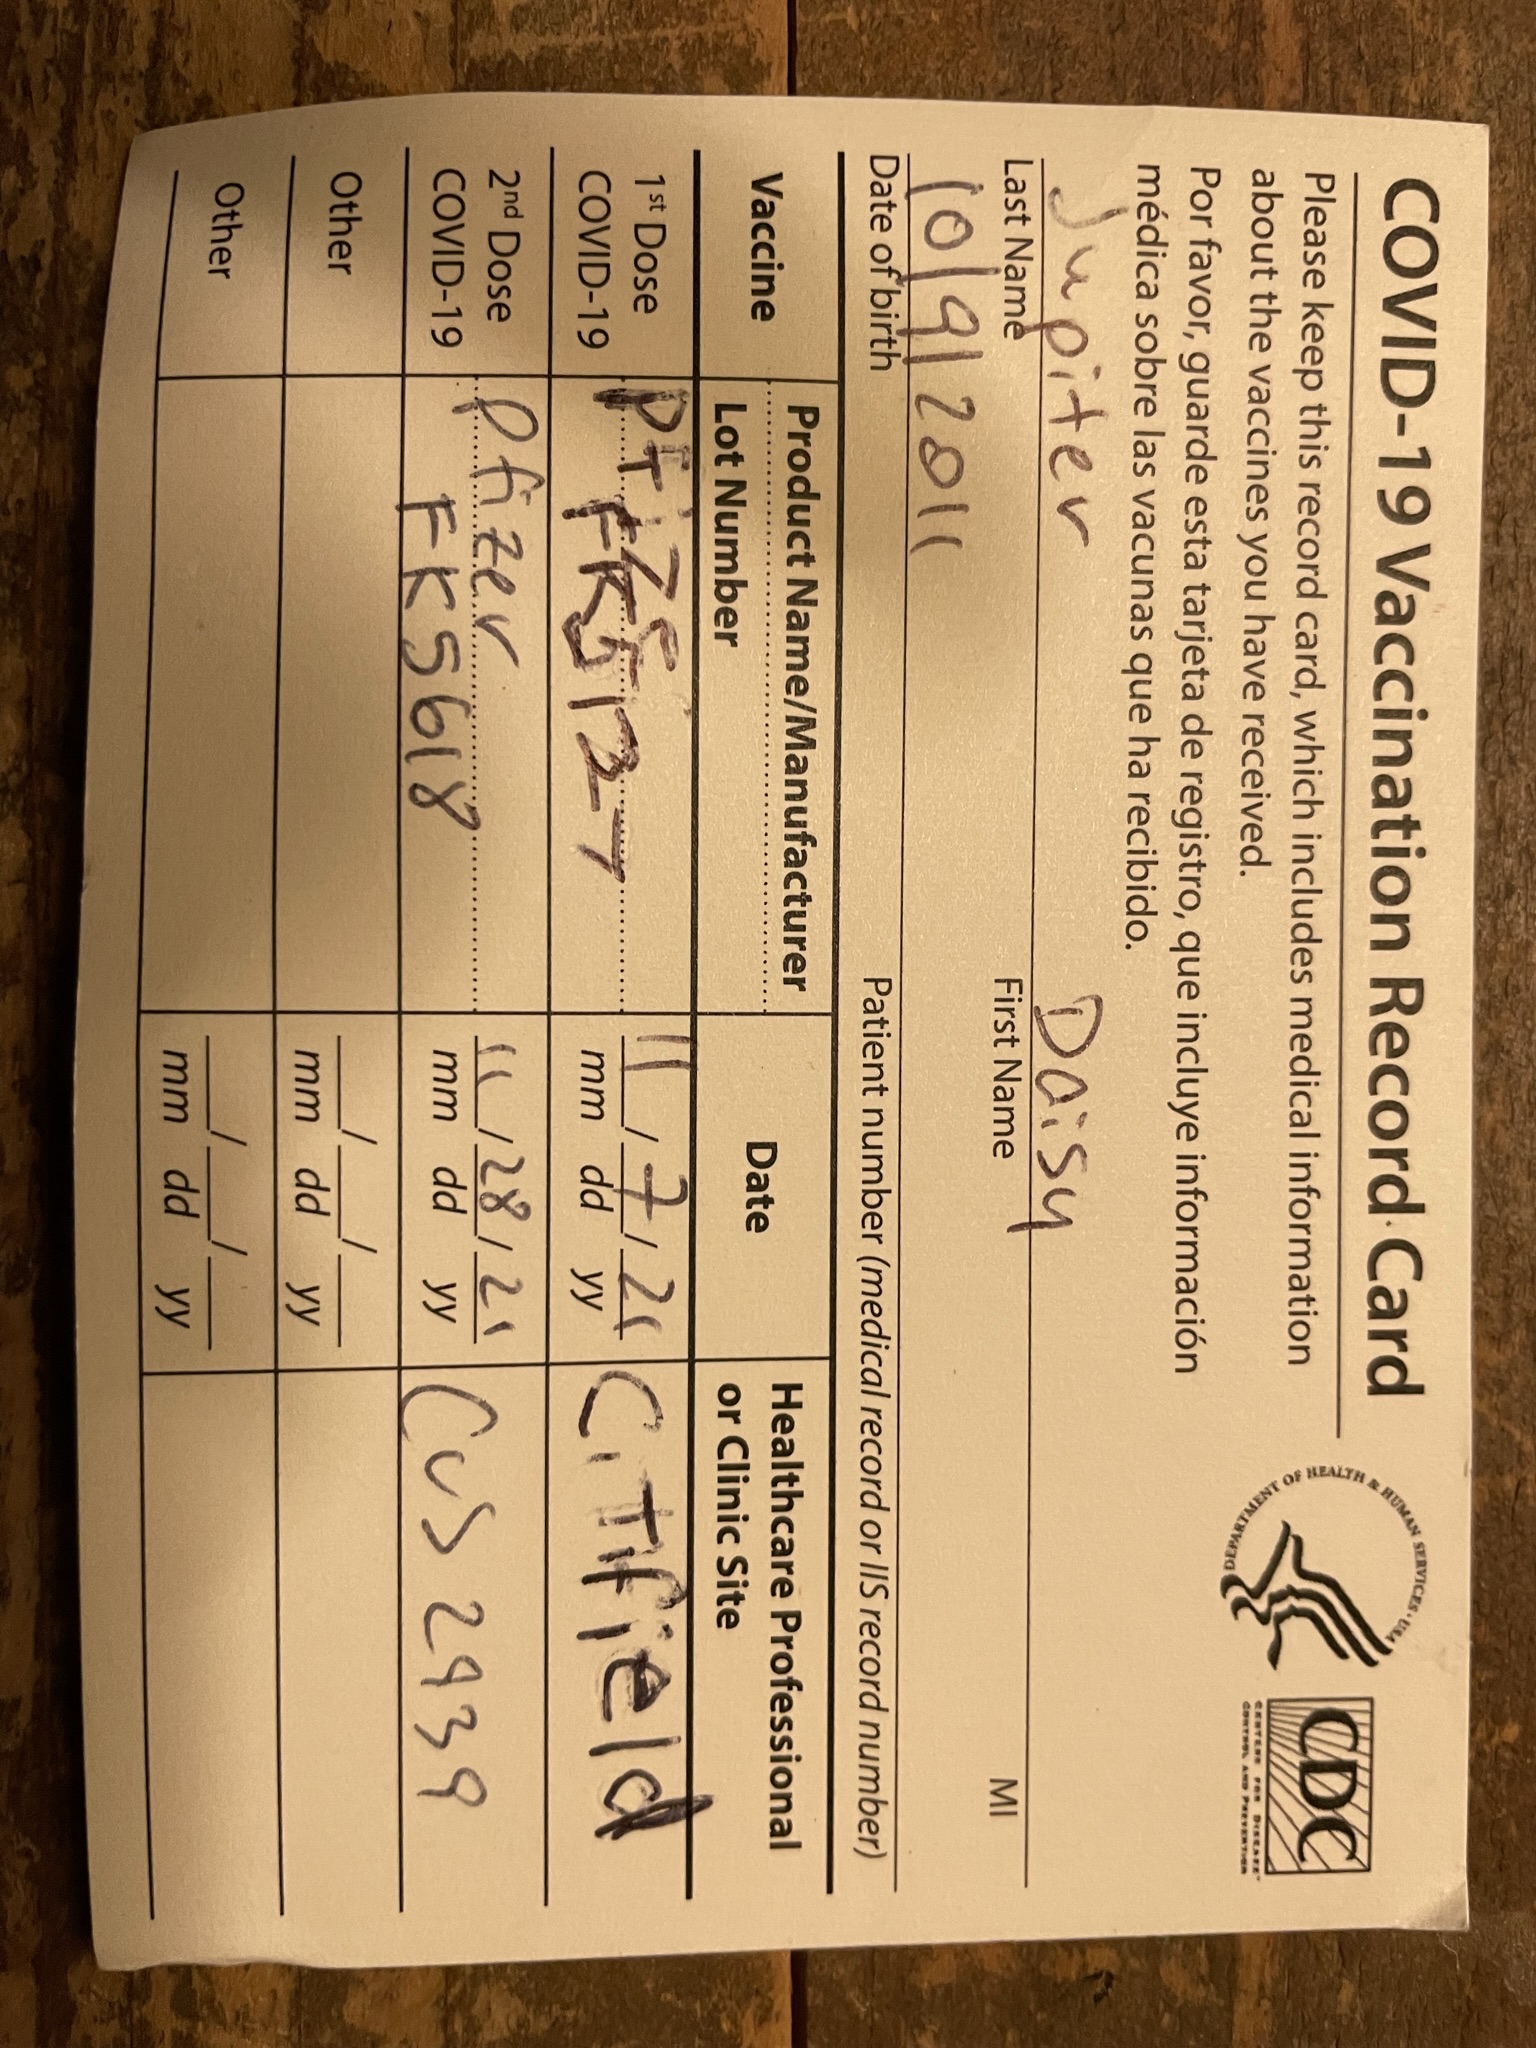 COVID-19 Vaccination Record Card
Please keep this record card, which includes medical information
about the vaccines you have received.
Por favor, guarde esta tarjeta de registro, que incluye información
médica sobre las vacunas que ha recibido.
DEPARTMENT OF HEALTH & HUMAN SERVICES · USA
CDC
CENTERS FOR DISEASE
CONTROL AND PREVENTION
Jupiter Daisy
Last Name First Name MI
10/9/2011
Date of birth Patient number (medical record or IIS record number)
Vaccine Product Name/Manufacturer Date Healthcare Professional
Lot Number or Clinic Site
1st Dose Pfizer 11/7/21 CiTifield
COVID-19 FK5127 mm dd yy
2nd Dose Pfizer 11/28/21 CVS 2939
COVID-19 FK5618 mm dd yy
Other ___/___/___
mm dd yy
Other ___/___/___
mm dd yy